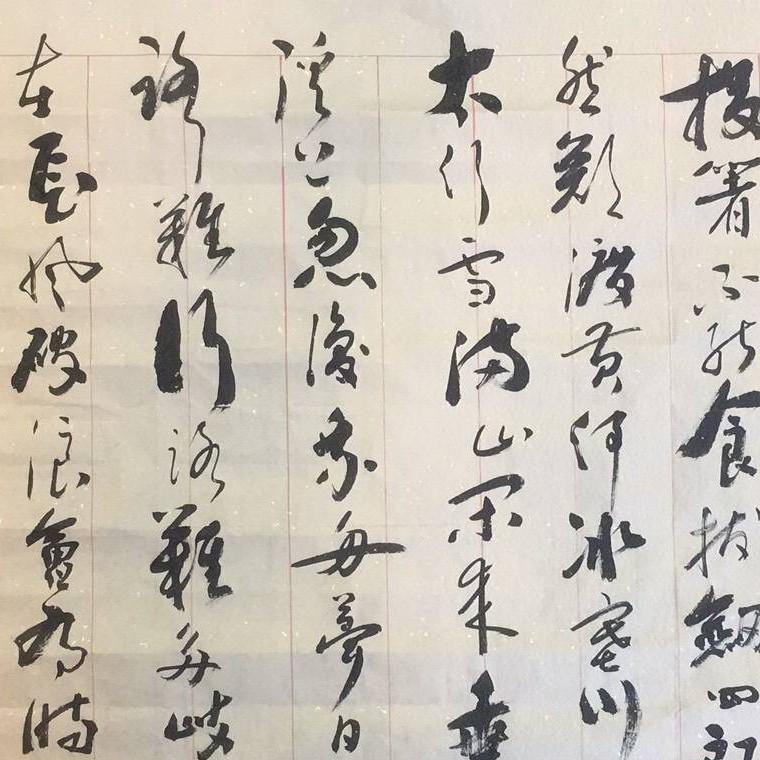 投箸不能食拔劍四顧
然欲渡黃河冰塞川
太行雪滿山閑來垂
溪上忽復乘舟夢日
路難行路難多歧
在長風破浪會為時